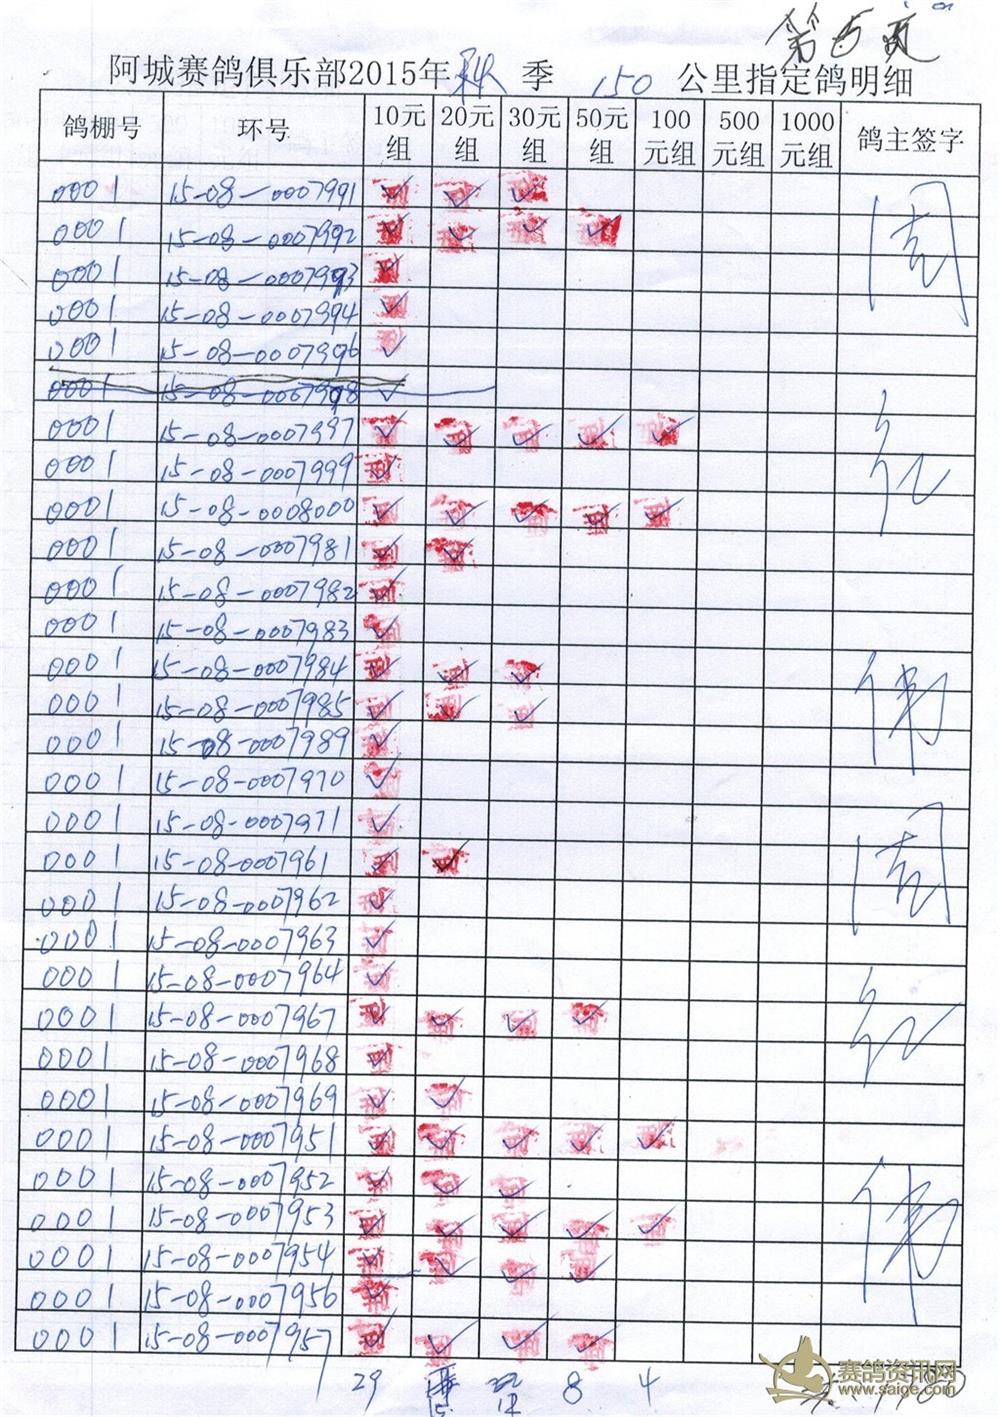 第五页
阿城赛鸽俱乐部2015年秋季 150 公里指定鸽明细
鸽棚号 环号 10元组 20元组 30元组 50元组 100元组 500元组 1000元组 鸽主签字
0001 15-08-0007991 ✓ ✓ ✓ 周
0001 15-08-0007992 ✓ ✓ ✓ ✓
0001 15-08-0007993 ✓
0001 15-08-0007994 ✓
0001 15-08-0007996 ✓
0001 15-08-0007998 ✓
0001 15-08-0007997 ✓ ✓ ✓ ✓ ✓ 红
0001 15-08-0007999 ✓
0001 15-08-0008000 ✓ ✓ ✓ ✓ ✓
0001 15-08-0007981 ✓ ✓
0001 15-08-0007982 ✓
0001 15-08-0007983 ✓
0001 15-08-0007984 ✓ ✓ ✓ 伟
0001 15-08-0007985 ✓ ✓ ✓
0001 15-08-0007989 ✓
0001 15-08-0007970 ✓
0001 15-08-0007971 ✓
0001 15-08-0007961 ✓ ✓ 周
0001 15-08-0007962 ✓
0001 15-08-0007963 ✓
0001 15-08-0007964 ✓
0001 15-08-0007967 ✓ ✓ ✓ ✓ 红
0001 15-08-0007968 ✓
0001 15-08-0007969 ✓ ✓
0001 15-08-0007951 ✓ ✓ ✓ ✓ ✓
0001 15-08-0007952 ✓ ✓ ✓
0001 15-08-0007953 ✓ ✓ ✓ ✓ ✓ 伟
0001 15-08-0007954 ✓ ✓ ✓ ✓
0001 15-08-0007956 ✓
0001 15-08-0007957 ✓ ✓ ✓ ✓
29 15 12 8 4
赛鸽资讯网
www.saige.com